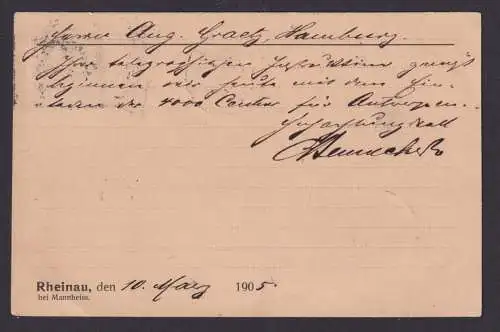 Herrn Aug. Graetz, Hamburg.
Ihrer telegrafischen Instruktion gemäß
beginnen wir heute mit dem Ein-
laden der 4000 Centner für Antwerpen.
Hochachtungsvoll
Rheinau, den 10. März 1905.
bei Mannheim.